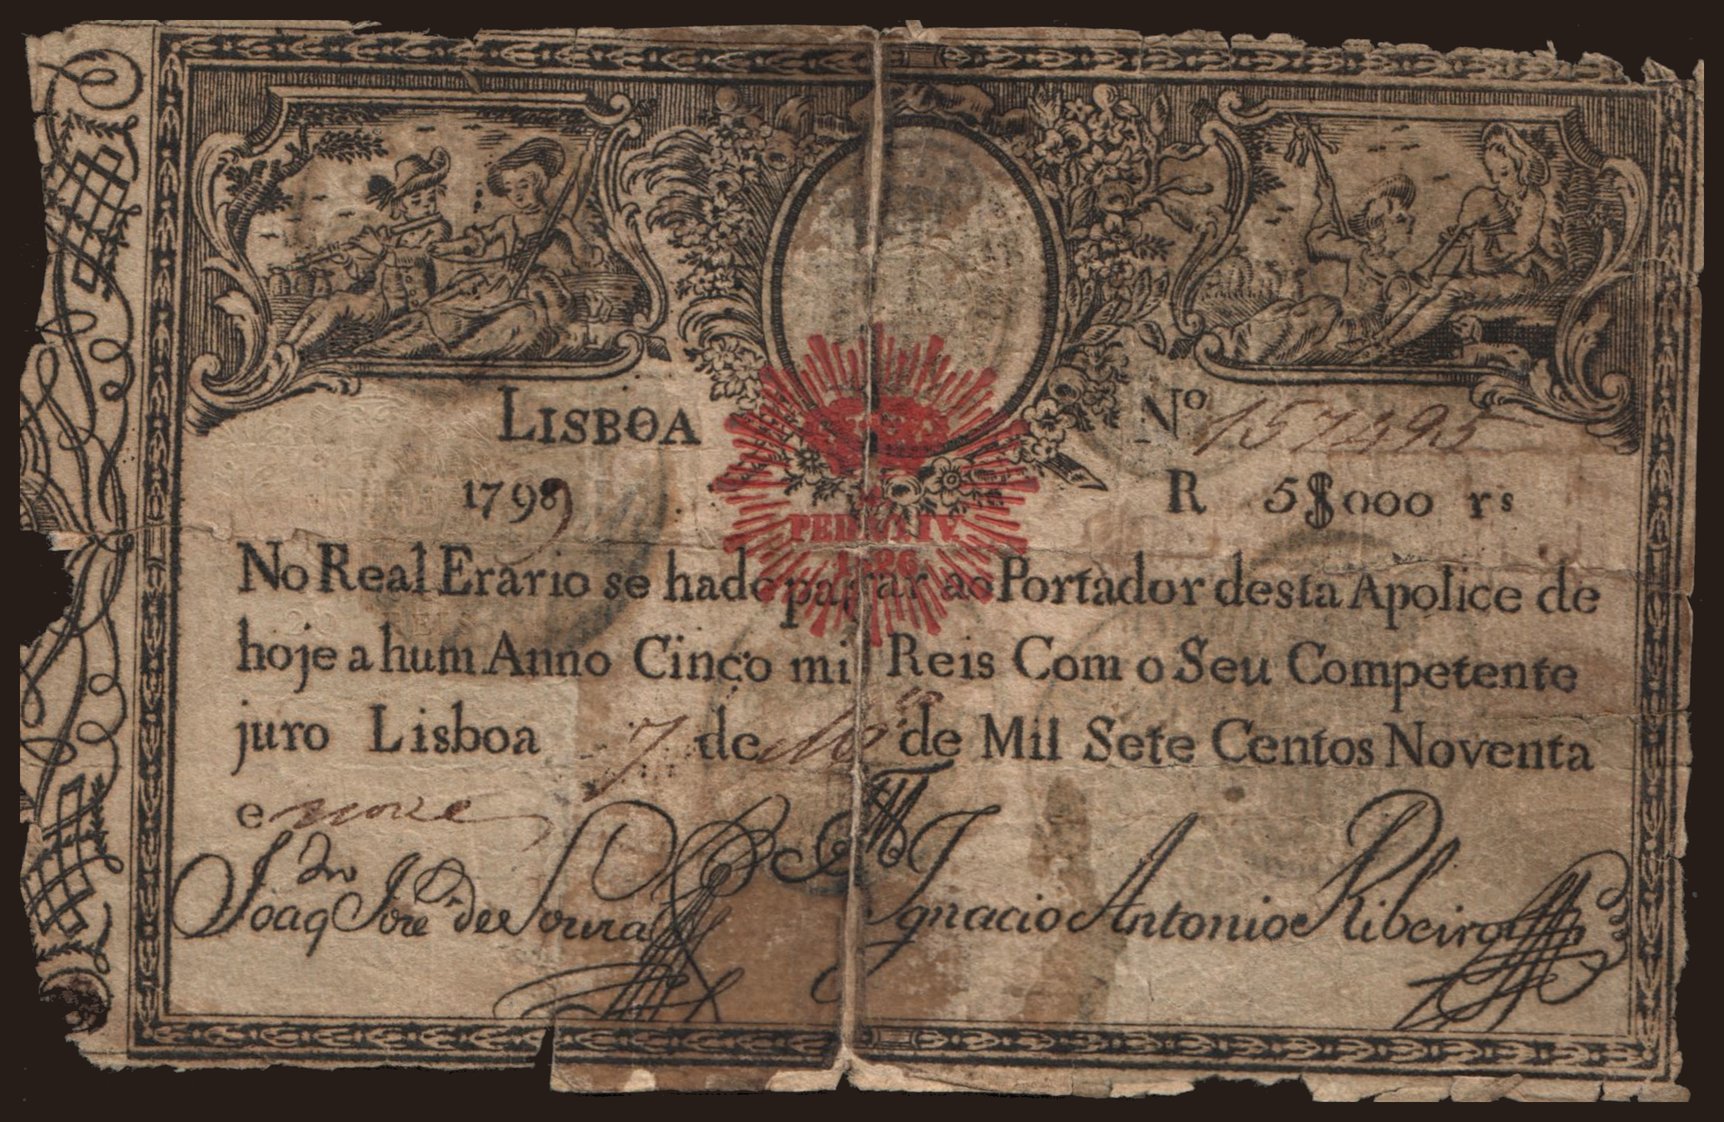 LISBOA
Nº 157495
1799
R 5$000 rs
PEDRO IV.
1826
No Real Erario se hade pagar ao Portador desta Apolice de
hoje a hum Anno Cinco mil Reis Com o Seu Competente
juro Lisboa 7 de de Mil Sete Centos Noventa
e nove
Joaq José de Souza Ignacio Antonio Ribeiro